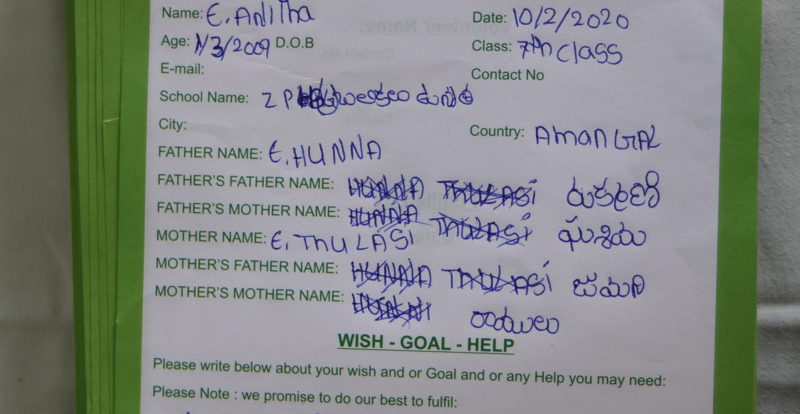 Name: E. Anitha Date: 10/2/2020
Age: 1/3/2009 D.O.B Class: 7th class
E-mail: Contact No
School Name: Z P
City: Country: AmanGAL
FATHER NAME: E. HUNNA
FATHER'S FATHER NAME: HUNNA THULASI
FATHER'S MOTHER NAME: HUNNA THULASI
MOTHER NAME: E. THULASI
MOTHER'S FATHER NAME: HUNNA THULASI జమని
MOTHER'S MOTHER NAME:
WISH - GOAL - HELP
Please write below about your wish and or Goal and or any Help you may need:
Please Note : we promise to do our best to fulfil: